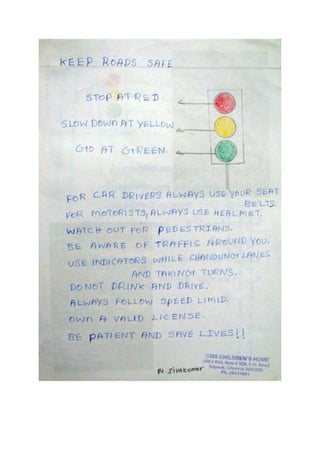 KEEP ROADS SAFE
STOP AT RED.
SLOW DOWN AT YELLOW
GO AT GREEN.
FOR CAR DRIVERS ALWAYS USE YOUR SEAT
BELTS.
FOR MOTORISTS, ALWAYS USE HEALMET.
WATCH OUT FOR PEDESTRIANS.
BE AWARE OF TRAFFIC AROUND YOU.
USE INDICATORS WHILE CHANDUNG LANES
AND TAKING TURNS.
DO NOT DRINK AND DRIVE.
ALWAYS FOLLOW SPEED LIMID.
OWN A VALID LICENSE.
BE PATIENT AND SAVE LIVES!!
N. Sivakumar
CMS CHILDREN'S HOME
Kilpauk, Chennai